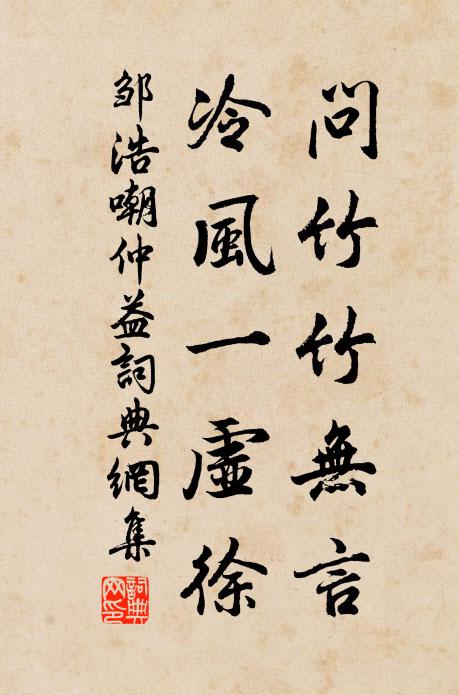 問竹竹無言
冷風一虛徐
邹浩嘲仲益詞典網集
詞典網印